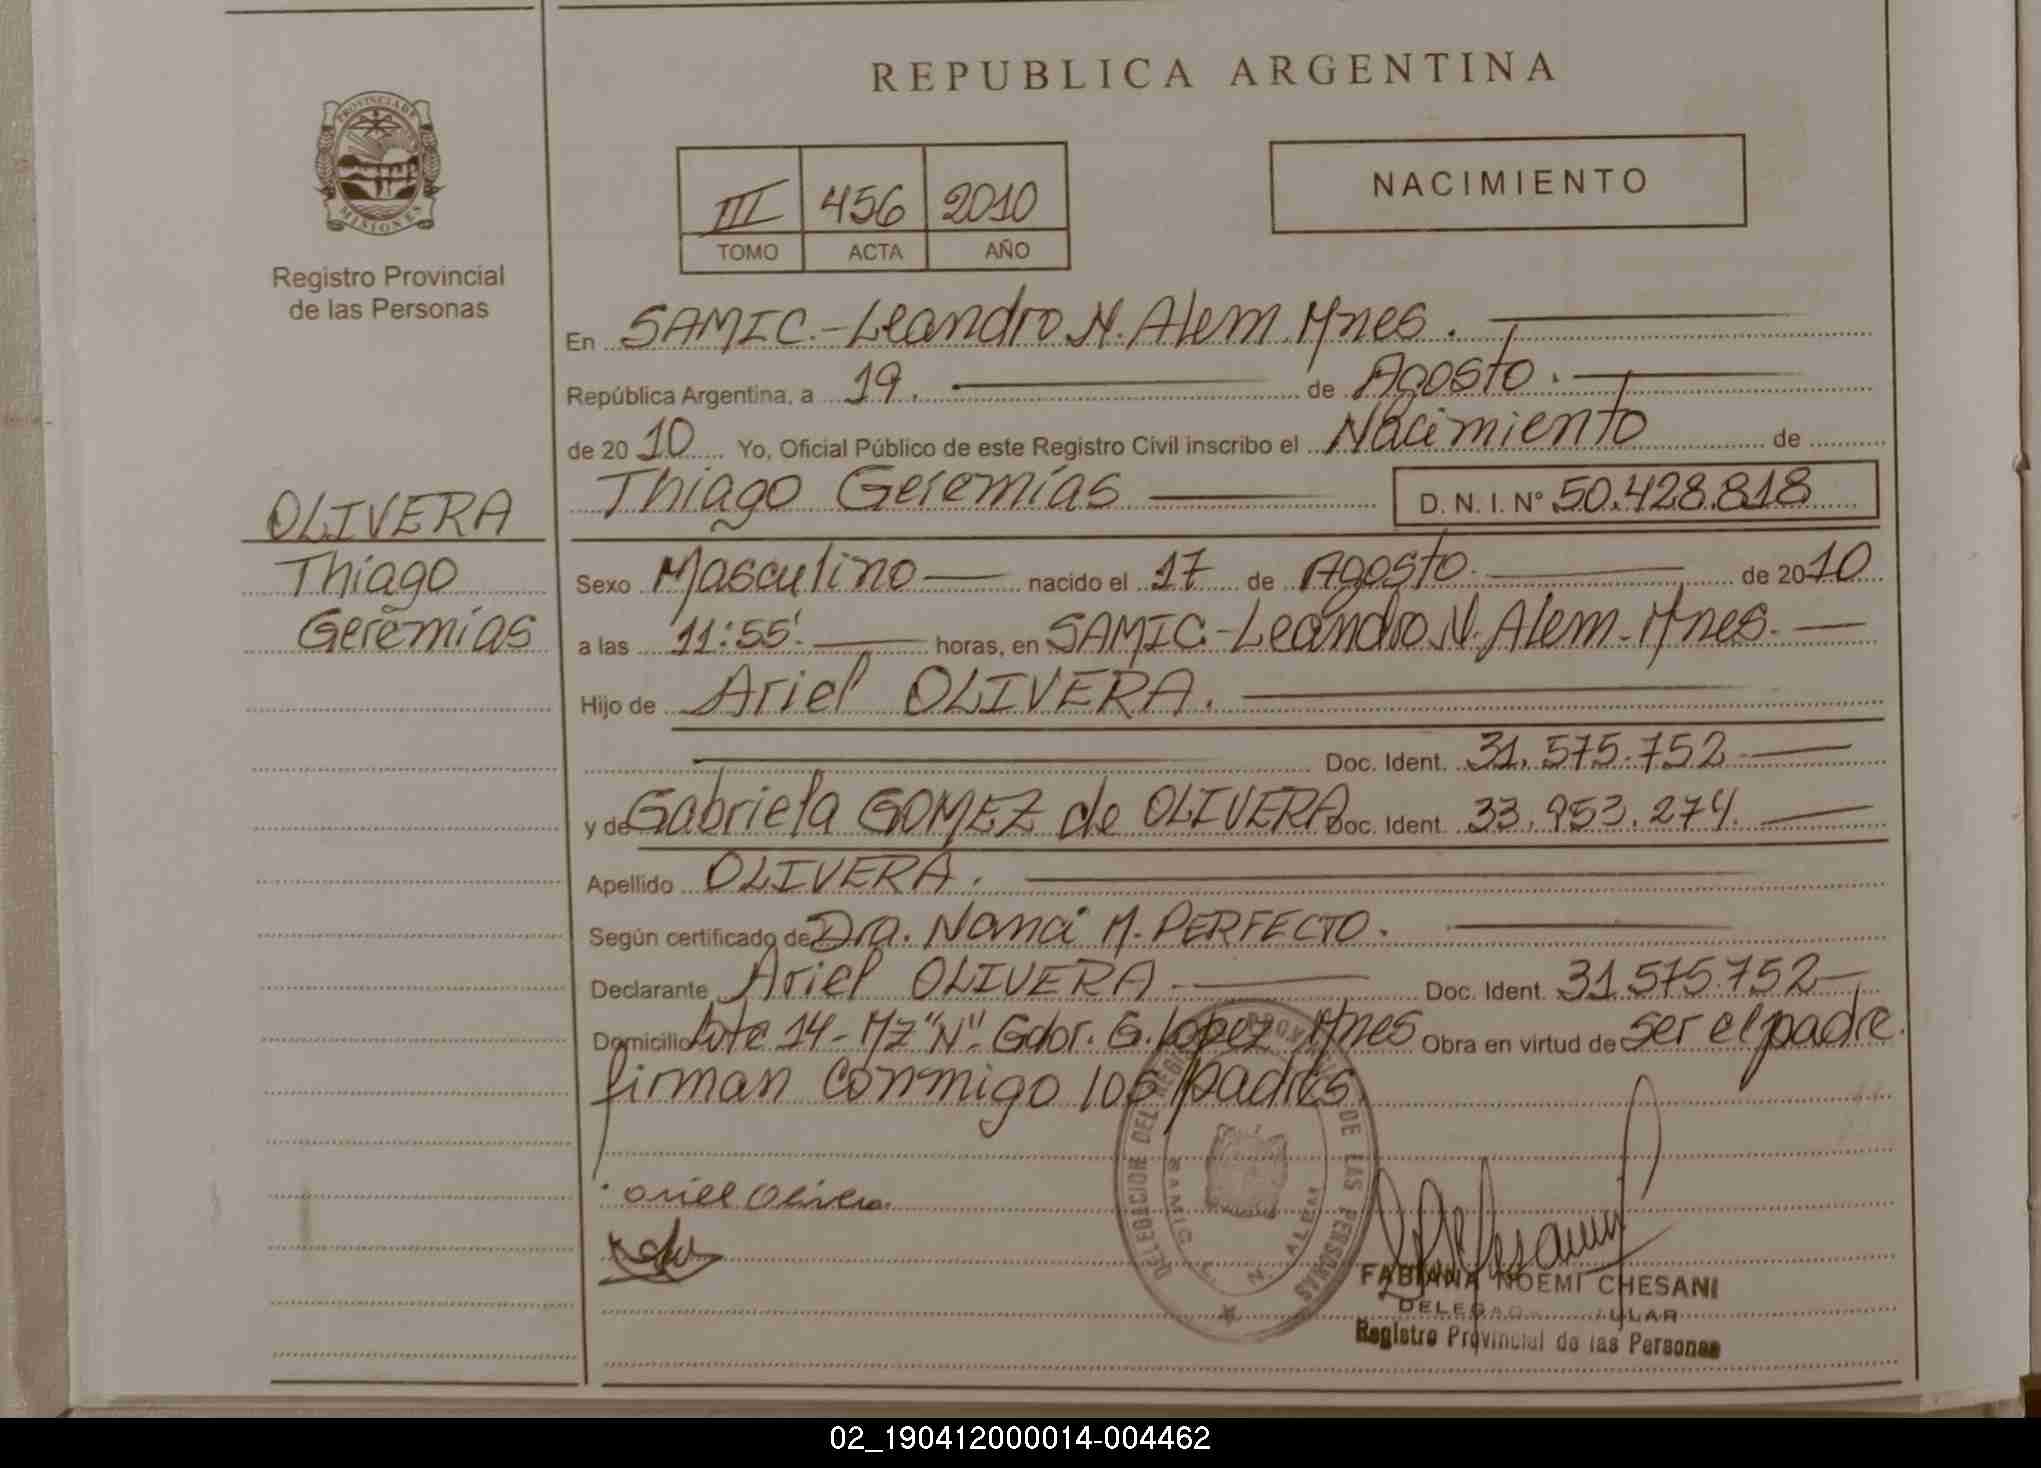 REPUBLICA ARGENTINA
PROVINCIA DE
MISIONES
Registro Provincial
de las Personas
III 456 2010
TOMO ACTA AÑO
NACIMIENTO
En SAMIC.-Leandro N. Alem. Mnes.
República Argentina, a 19. de Agosto.
de 2010 Yo, Oficial Público de este Registro Civil inscribo el Nacimiento de
Thiago Geremías D. N. I. Nº 50.428.818
OLIVERA
Thiago
Geremías
Sexo Masculino nacido el 17 de Agosto. de 2010
a las 11:55'. horas, en SAMIC.-Leandro N. Alem.-Mnes.
Hijo de Ariel OLIVERA.
Doc. Ident. 31.575.752
y de Gabriela GOMEZ de OLIVERA Doc. Ident. 33.953.274.
Apellido OLIVERA.
Según certificado de Dra. Nanci M. PERFECTO.
Declarante Ariel OLIVERA. Doc. Ident. 31.575.752
Domicilio Lote 14-Mz "N". Gdor. G. Lopez Mnes Obra en virtud de ser el padre.
firman conmigo los padres.
DELEGACION DEL REGISTRO PROVINCIAL DE LAS PERSONAS
SAMIC L. N. ALEM
Ariel Olivera
FABIANA NOEMI CHESANI
Registro Provincial de las Personas
02_190412000014-004462